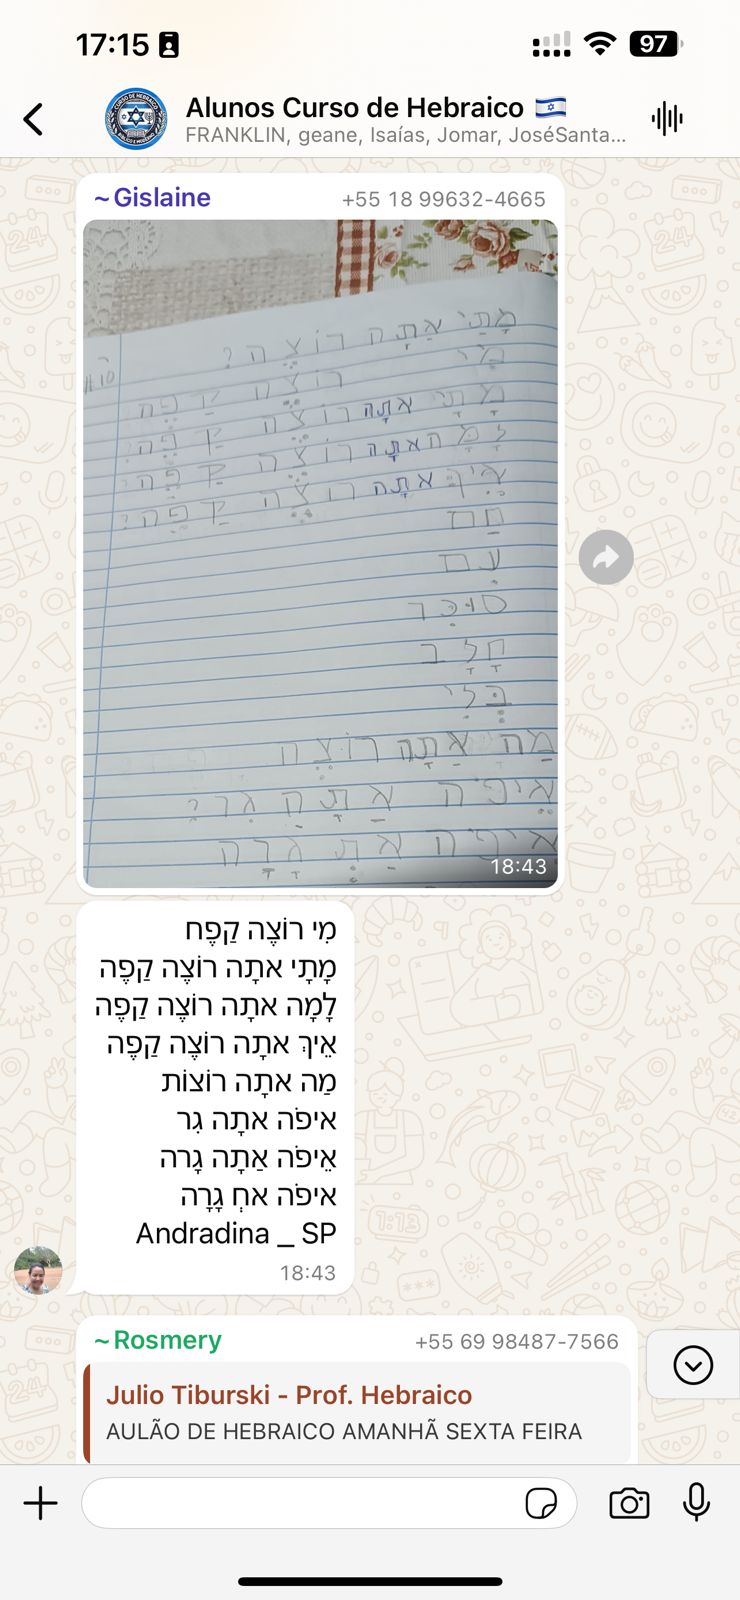 17:15
97
Alunos Curso de Hebraico 🇮🇱
FRANKLIN, geane, Isaías, Jomar, JoséSanta...
~Gislaine +55 18 99632-4665
מָתַי אַתָּה רוֹצֶה?
מִי רוֹצֶה קָפֶה
מָתָי אתָּה רוֹצֶה קָפֶה?
לָמָּה אתָּה רוֹצֶה קָפֶה?
אֵיךְ אתָּה רוֹצֶה קָפֶה?
חַם
עִם
סוּכָּר
חָלָב
בְּלִי
מַה אַתָּה רוֹצֶה
אֵיפֹה אַתָּה גָר?
אֵיפֹה אַתְּ גָרָה
18:43
מִי רוֹצֶה קַפֶח
מָתָי אתָה רוֹצֶה קַפֶה
לָמָה אתָה רוֹצֶה קַפֶה
אֵיךְ אתָה רוֹצֶה קַפֶה
מַה אתָה רוֹצוֹת
איפֹה אתָה גִר
אֵיפֹה אַתָה גָרה
איפֹה אחְ גָרָה
Andradina _ SP
18:43
~Rosmery +55 69 98487-7566
Julio Tiburski - Prof. Hebraico
AULÃO DE HEBRAICO AMANHÃ SEXTA FEIRA